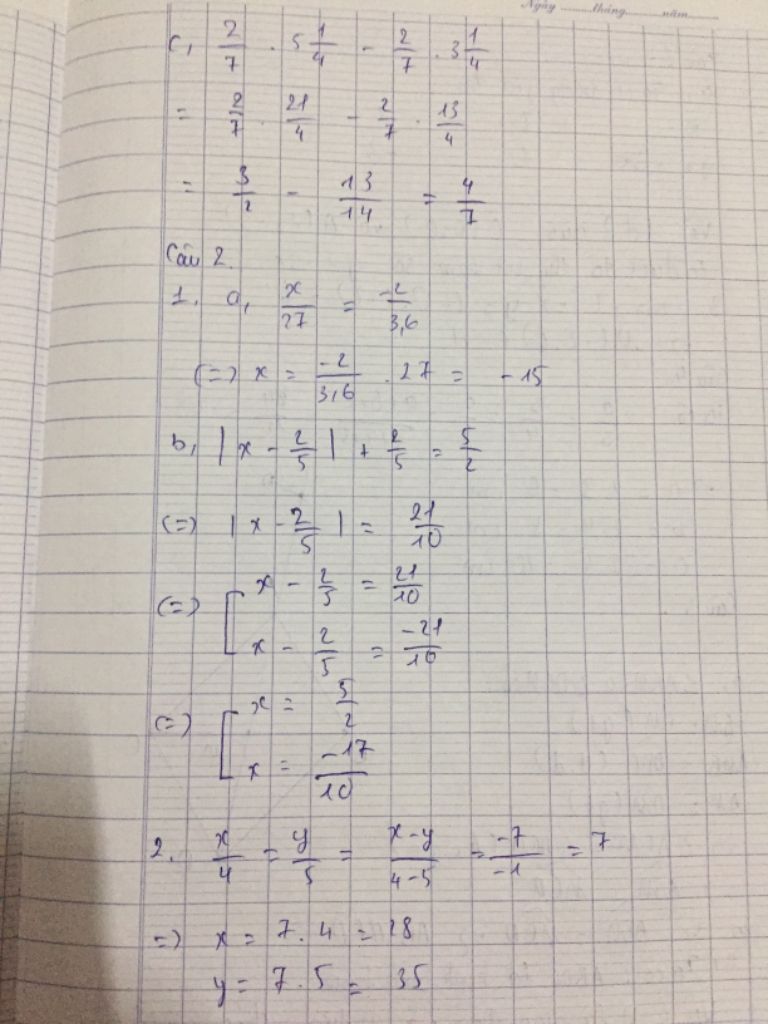 Ngày ......... tháng ......... năm .........
c, 2/7 . 5 1/4 - 2/7 . 3 1/4
= 2/7 . 21/4 - 2/7 . 13/4
= 3/2 - 13/14 = 4/7
Câu 2.
1, a, x/27 = -2/3,6
(=) x = -2/3,6 . 27 = -15
b, |x - 2/5| + 2/5 = 5/2
(=) |x - 2/5| = 21/10
(=) [ x - 2/5 = 21/10
x - 2/5 = -21/10
(=) [ x = 5/2
x = -17/10
2. x/4 = y/5 = x-y/4-5 = -7/-1 = 7
=) x = 7.4 = 28
y = 7.5 = 35